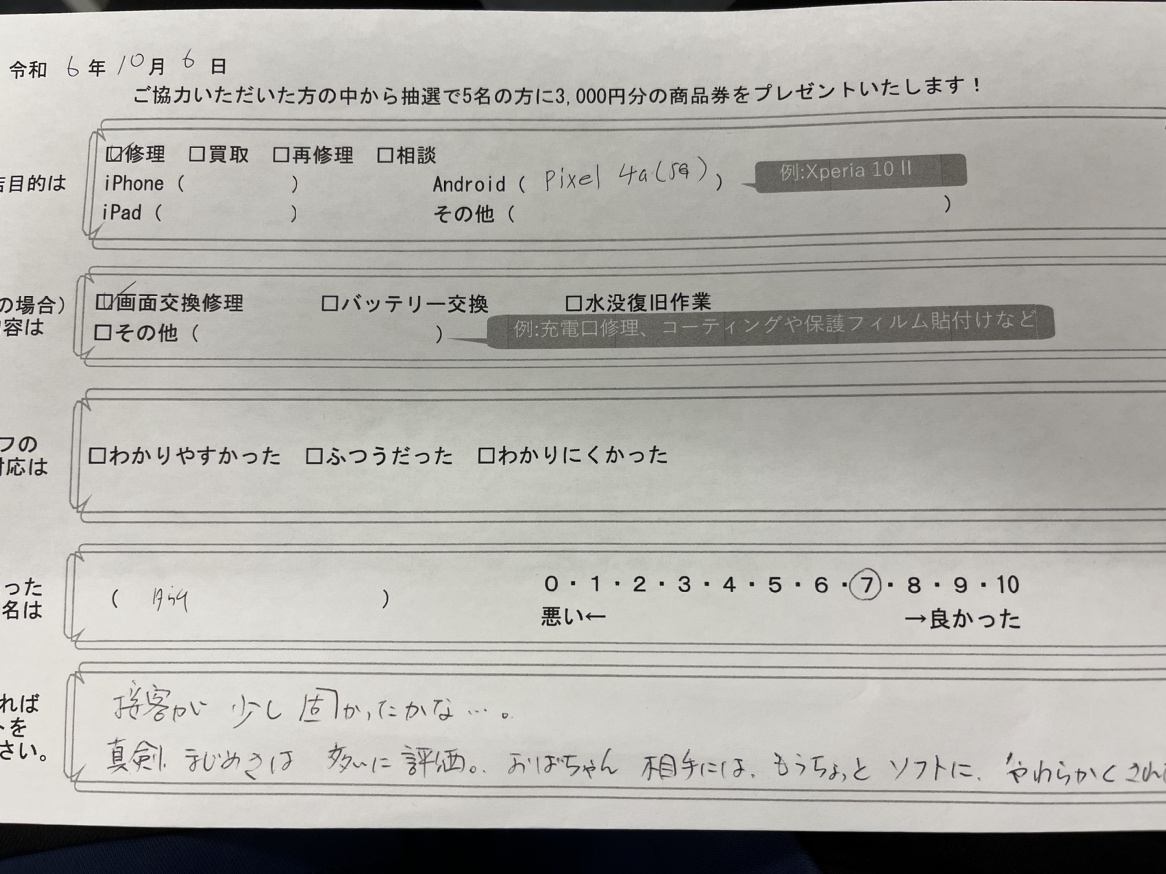 令和 6 年 10 月 6 日
ご協力いただいた方の中から抽選で5名の方に3,000円分の商品券をプレゼントいたします！
☑修理 □買取 □再修理 □相談
店目的は iPhone ( ) Android ( Pixel 4a(5G) ) 例:Xperia 10 II
iPad ( ) その他 ( )
の場合) ☑画面交換修理 □バッテリー交換 □水没復旧作業
内容は □その他 ( ) 例:充電口修理、コーティングや保護フィルム貼付けなど
フの
対応は □わかりやすかった □ふつうだった □わかりにくかった
った 0・1・2・3・4・5・6・7・8・9・10
名は ( )
悪い← →良かった
れば 接客が 少し 固かったかな…。
トを
さい。 真剣、まじめさは 多いに 評価。おばちゃん 相手には、もうちょっと ソフトに、やわらかく